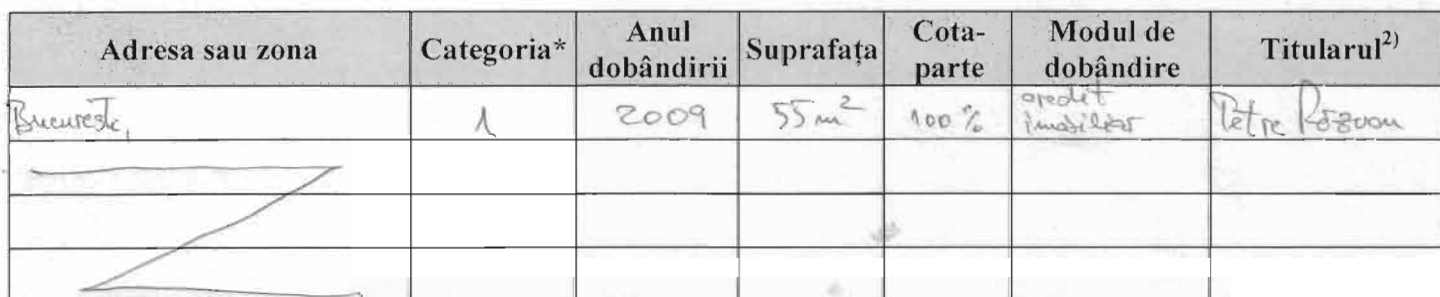 Adresa sau zona Categoria* Anul dobândirii Suprafața Cota-parte Modul de dobândire Titularul2)
București, 1 2009 55 m² 100 % credit imobiliar Petre Răzvan